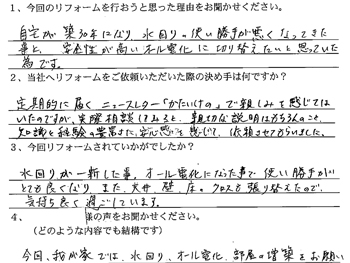 1、今回のリフォームを行おうと思った理由をお聞かせください。
自宅が築30年になり、水回りの使い勝手が悪くなってきた
事と、安全性が高いオール電化に切り替えたいと思っていた
為です。
2、当社へリフォームをご依頼いただいた際の決め手は何ですか?
定期的に届くニュースレター「かたいけの」で親しみを感じては
いたのですが、実際に話してみると、親切な説明はもちろんのこと、
知識と経験の豊富さに安心感を感じて、依頼させてもらいました。
3、今回リフォームされていかがでしたか?
水回りが一新した事、オール電化になった事で使い勝手がい
とても良くなり、また、天井、壁、床のクロスも張り替えたので、
気持ち良く過ごしています。
4、 様の声をお聞かせください。
(どのような内容でも結構です)
今回、我が家では、水回り、オール電化、部屋の増築をお願い